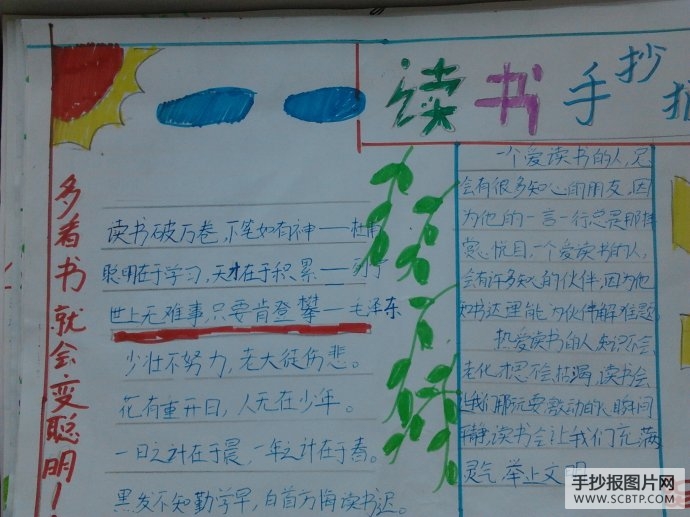 读书手抄报
多看书就会变聪明!
读书破万卷,下笔如有神——杜甫
聪明在于学习,天才在于积累——列宁
世上无难事,只要肯登攀—毛泽东
少壮不努力,老大徒伤悲。
花有重开日,人无在少年。
一日之计在于晨,一年之计在于春。
黑发不知勤学早,白首方悔读书迟。
一个爱读书的人,足
会有很多知心的朋友,因
为他的一言一行总是那样
赏心悦目,一个爱读书的人,
会有许多知心的伙伴,因为他
知书达理能为伙伴解难题。
热爱读书的人知识不会
老化才思不会枯竭,读书会
让我们那玩耍激动的心瞬间
平静,读书会让我们充满
灵气,举止文明
手抄报图片网
WWW.SCBTP.COM